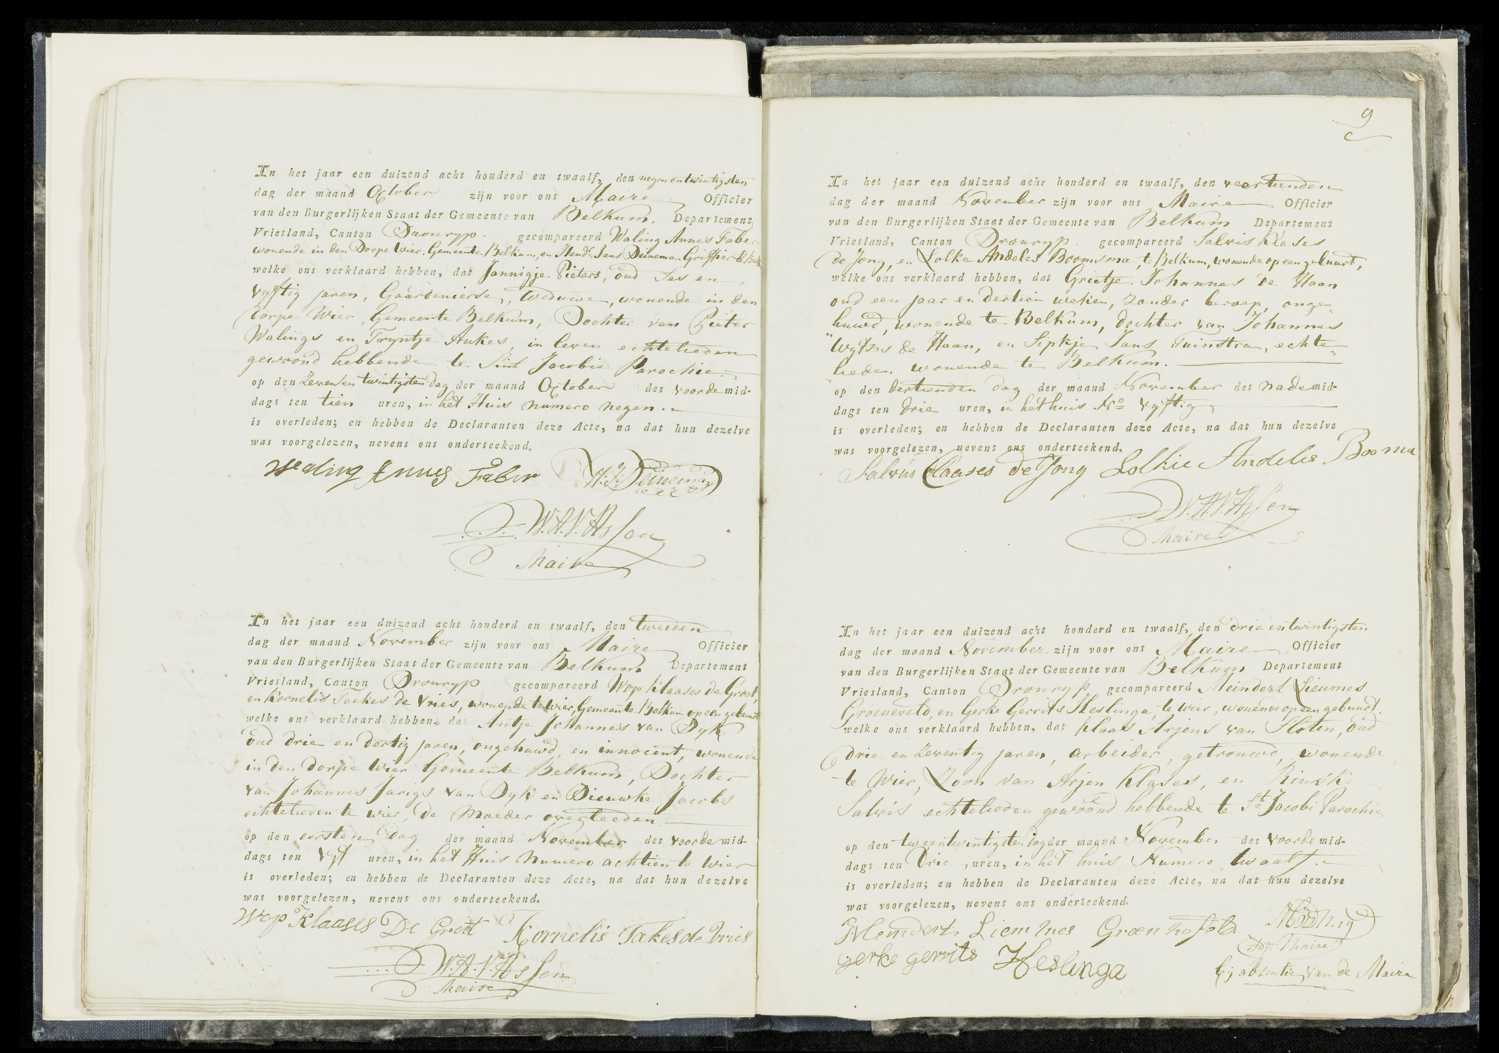 In het jaar een duizend acht honderd en twaalf, den negenentwintigsten
dag der maand October zijn voor ons Maire Officier
van den Burgerlijken Staat der Gemeente van Belkum, Departement
Vriesland, Canton Dronryp. gecompareerd Waling Annes Faber
wonende in den Dorpe Wier, Gemeente Belkum, en Griffier
welke ons verklaard hebben, dat Jannigje Pieters, oud Ses en
vyftig jaren, Gardenierse, weduwe, wonende in den
dorpe Wier, Gemeente Belkum, Dochter van Pieter
Walings en Tryntje Ankes, in leven echtelieden
gewoond hebbende te Sint Jacobie Parochie.
op den Zevenentwintigsten dag der maand October des voordemid-
dags ten tien uren, in het Huis numero negen.
is overleden; en hebben de Declaranten deze Acte, na dat hun dezelve
was voorgelezen, nevens ons onderteekend.
Waling Annes Faber
W.A.V. Assen
Maire
In het jaar een duizend acht honderd en twaalf, den tweeden
dag der maand November zijn voor ons Maire Officier
van den Burgerlijken Staat der Gemeente van Belkum Departement
Vriesland, Canton Dronryp gecompareerd Wop Klaases de Groot,
en Kornelis Takes de Vries, wonende te Wier, Gemeente Belkum op een gebuurt
welke ons verklaard hebben, dat Antje Johannes van Dyk
oud drie en dertig jaren, ongehuwd, en innocent, wonende
in den dorpe Wier Gemeente Belkum, Dochter
van Johannes Jarigs van Dyk en Dieuwke Jacobs
echtelieden te wier, de Moeder overleeden
op den eersten dag der maand November des voordemid-
dags ten vyf uren, in het Huis numero achtien te Wier
is overleden; en hebben de Declaranten deze Acte, na dat hun dezelve
was voorgelezen, nevens ons onderteekend.
Wop Klaases De Groot Kornelis Takes de Vries
W.A.V. Assen
Maire
9
In het jaar een duizend acht honderd en twaalf, den veertienden
dag der maand November zijn voor ons Maire Officier
van den Burgerlijken Staat der Gemeente van Belkum Departement
Vriesland, Canton Dronryp. gecompareerd Salvis Klases
de Jong, en Lolke Andeles Boomsma, te Belkum, wonende op een gebuurt,
welke ons verklaard hebben, dat Grietje Johannes de Haan
oud een jaar en dertien weken, zonder beroep, onge-
huwd, wonende te Belkum, dochter van Johannes
Wytses de Haan, en Sipkje Sans Tuinstra, echte-
lieden wonende te Belkum.
op den dertienden dag der maand November des nademid-
dags ten drie uren, in het huis No vyftig
is overleden; en hebben de Declaranten deze Acte, na dat hun dezelve
was voorgelezen, nevens ons onderteekend.
Salvis Claases de Jong Lolkie Andelis Booma
W.A.V. Assen
Maire
In het jaar een duizend acht honderd en twaalf, den drie entwintigsten
dag der maand November zijn voor ons Maire Officier
van den Burgerlijken Staat der Gemeente van Belkum Departement
Vriesland, Canton Dronryp gecompareerd Meindert Lieumes
Groeneveld, en Gerke Gerrits Heslinga, te wier, wonende op een gebuurt.
welke ons verklaard hebben, dat Klaas Arjens van Sloten, oud
drie en Zeventig jaren, arbeider, getrouwd, wonende
te Wier, Zoon van Arjen Klases, en Rinske
Salvis echtelieden gewoond hebbende te St Jacobi Parochie
op den tweeentwintigsten dag der maand November des voordemid-
dags ten Drie uren, in het huis Numero twaalf.
is overleden; en hebben de Declaranten deze Acte, na dat hun dezelve
was voorgelezen, nevens ons onderteekend.
Meindert Liemmes
gerke gerrits Heslinga
bij absentie van de Maire